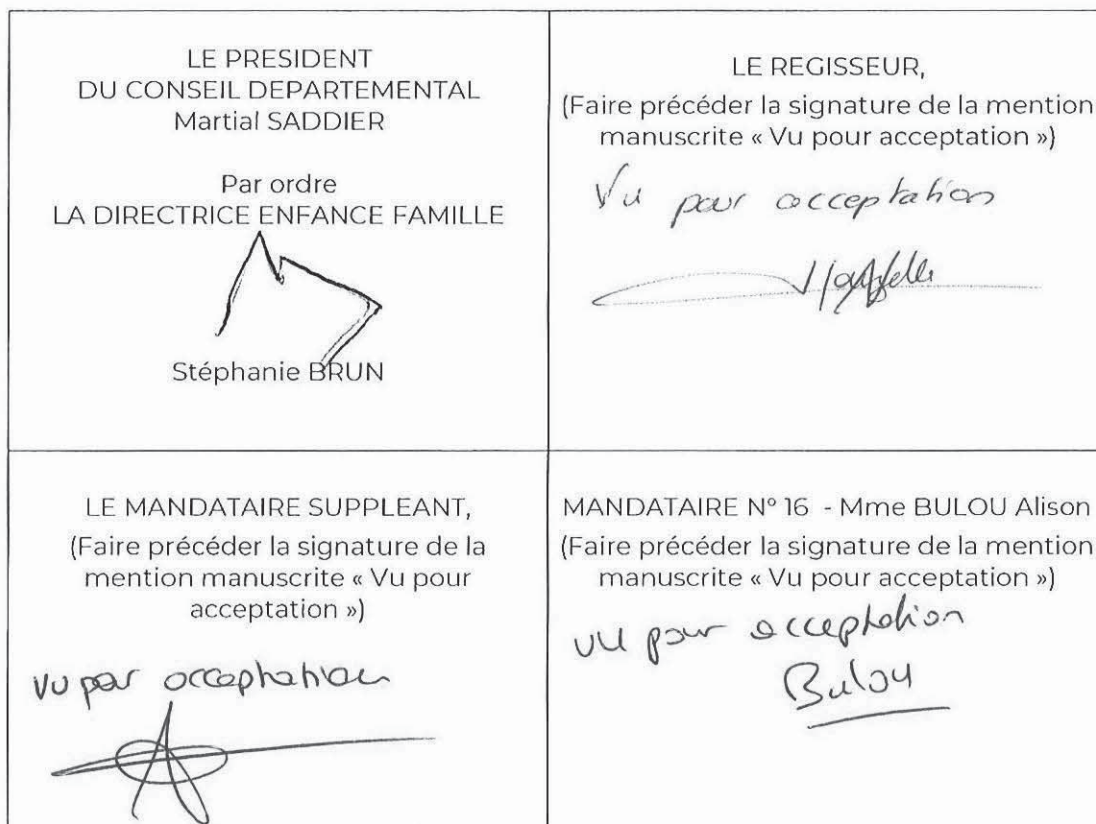 LE PRESIDENT
DU CONSEIL DEPARTEMENTAL
Martial SADDIER
Par ordre
LA DIRECTRICE ENFANCE FAMILLE
Stéphanie BRUN
LE REGISSEUR,
(Faire précéder la signature de la mention
manuscrite « Vu pour acceptation »)
Vu pour acceptation
LE MANDATAIRE SUPPLEANT,
(Faire précéder la signature de la
mention manuscrite « Vu pour
acceptation »)
Vu pour acceptation
MANDATAIRE N° 16 - Mme BULOU Alison
(Faire précéder la signature de la mention
manuscrite « Vu pour acceptation »)
vu pour acceptation
Bulou